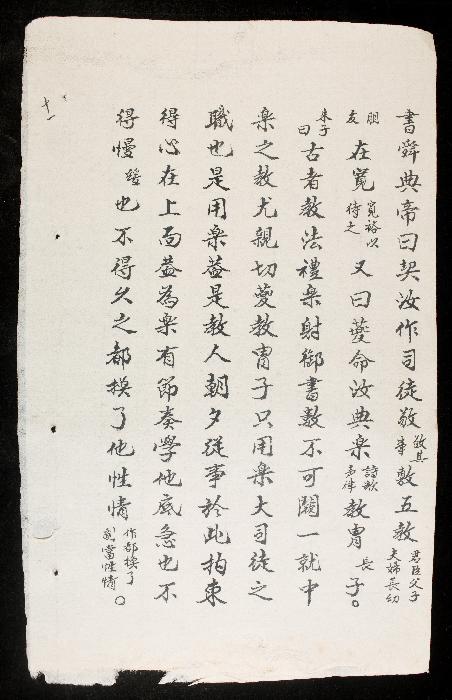 書舜典帝曰契汝作司徒敬敬其事敷五教君臣父子夫婦長幼
朋友在寬寬裕以待之又曰夔命汝典樂詩歌声律教胄長子。
朱子曰古者教法禮樂射御書数不可闕一就中
樂之教尤親切夔教胄子只用樂大司徒之
職也是用樂蓋是教人朝夕從事於此拘束
得心在上面蓋為樂有節奏學他底急也不
得慢緩也不得久之都換了他性情作都換了別當性情。
十一